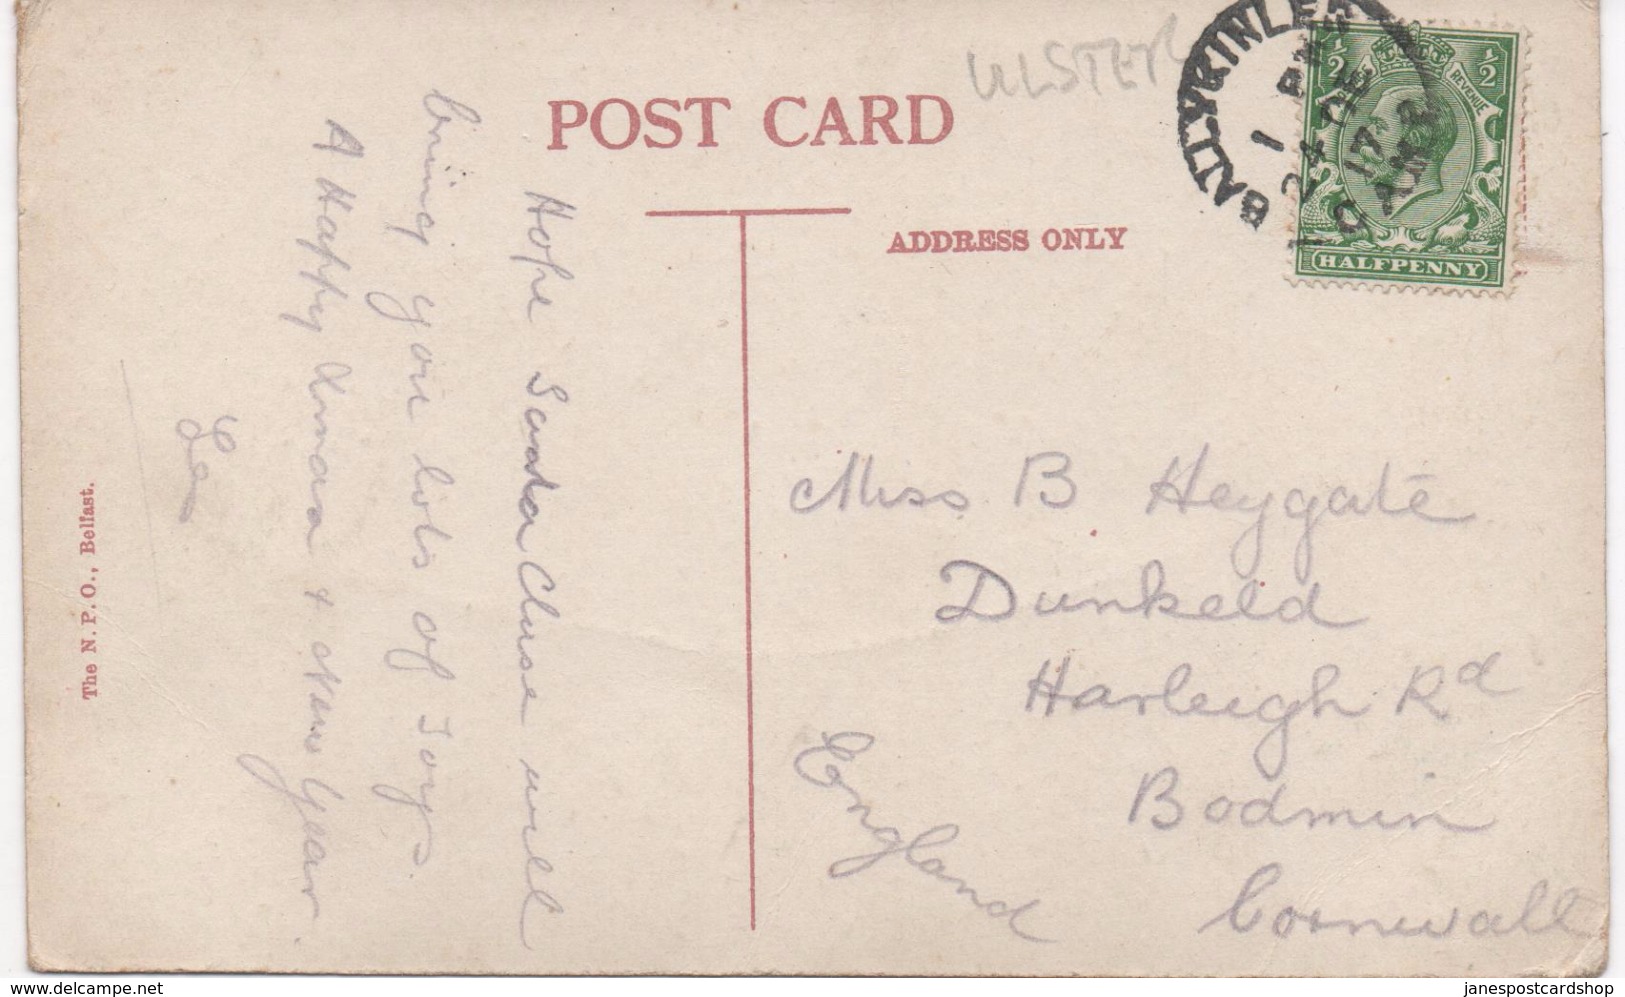 ULSTER
POST CARD
ADDRESS ONLY
BALLYKINLER
24 DE 17
HALFPENNY
REVENUE
1/2
1/2
Hope Santa Cluse will
bring you lots of Toys.
A Happy Xmas + New Year.
Les
Miss B Heygate
Dunkeld
Harleigh Rd
Bodmin
Cornwall
England
The N. P. O., Belfast.
www.delcampe.net
janespostcardshop